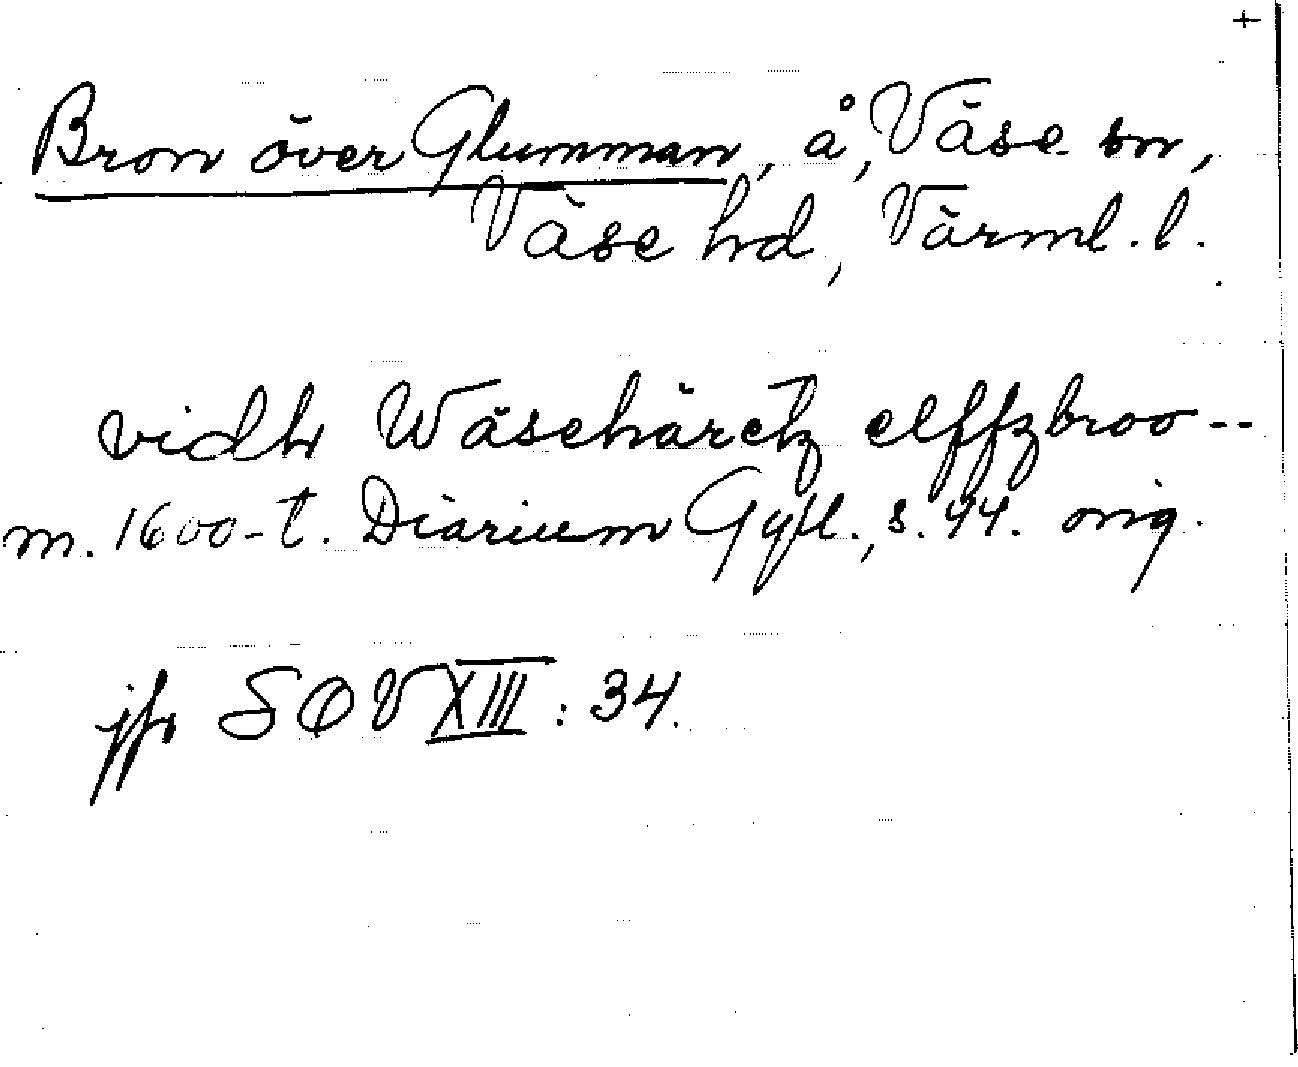 +
Bron över Glumman, å, Väse sn,
Väse hd, Värml. l.
vidh Wäsehäretz elffzbroo --
m. 1600-t. Diarium Gyll., s. 44. orig.
jfr SOV XIII : 34.